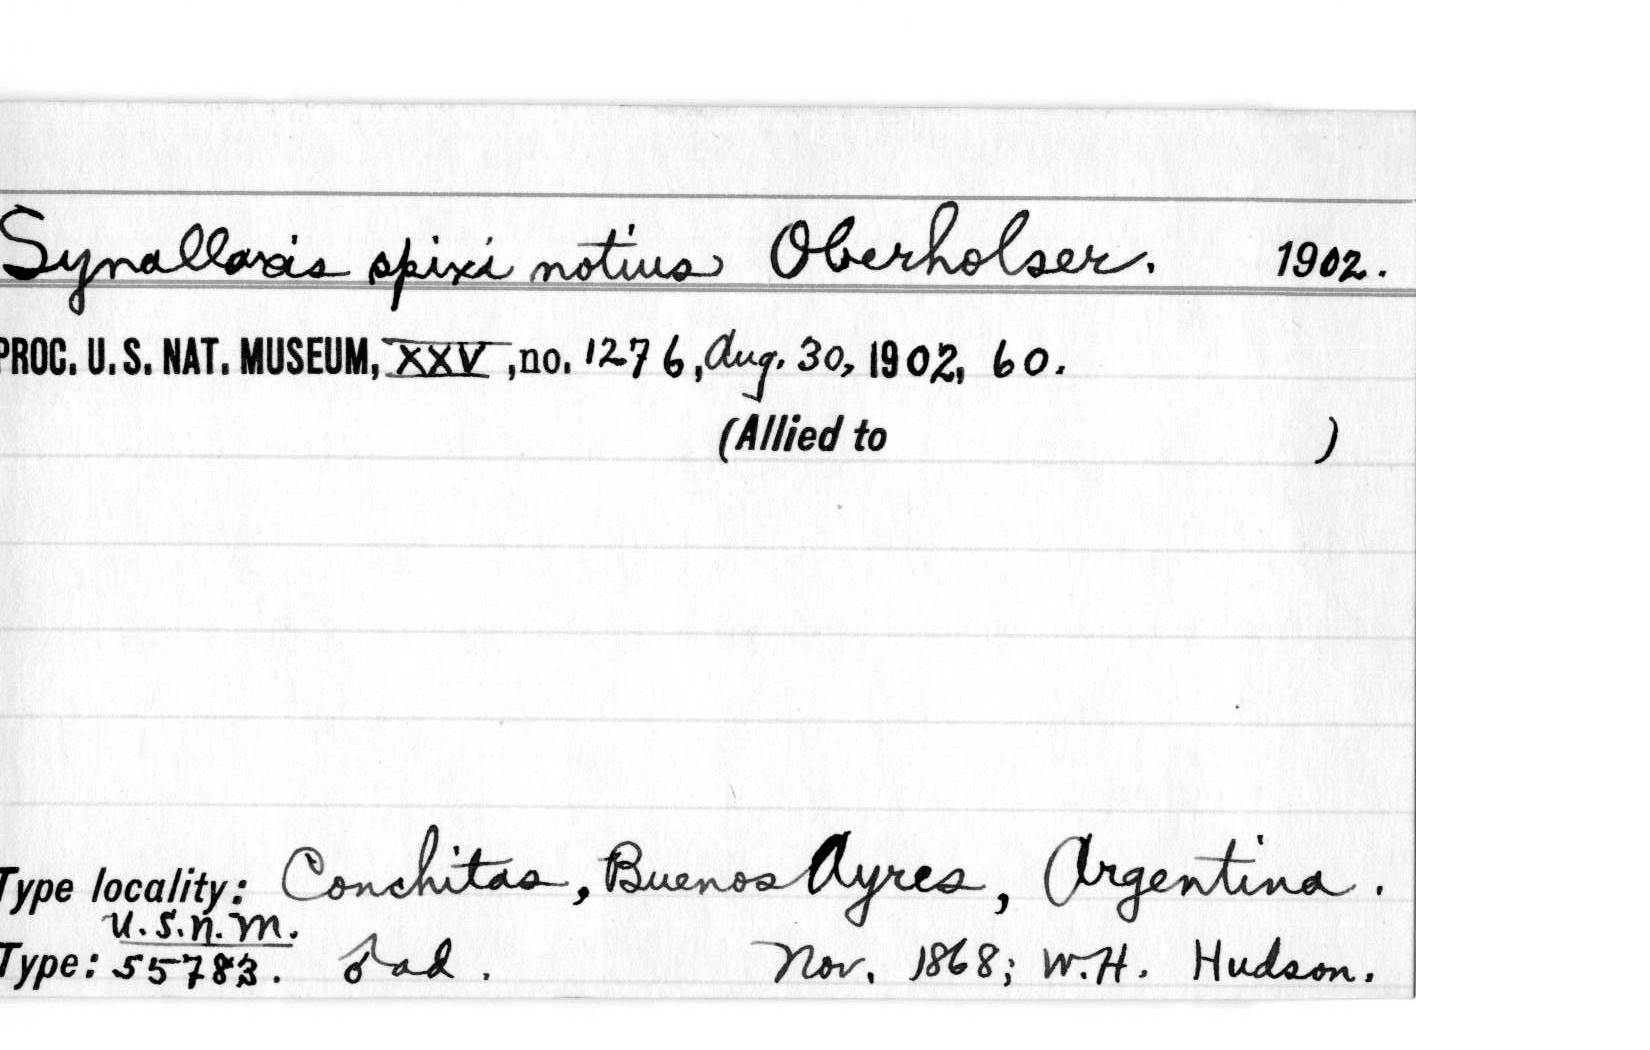 Synallaxis spixi notius Oberholser. 1902.
PROC. U. S. NAT. MUSEUM, XXV, no. 1276, Aug. 30, 1902, 60.
(Allied to )
Type locality: Conchitas, Buenos Ayres, Argentina.
U.S.N.M.
Type: 55783. ♂ ad. Nov. 1868; W. H. Hudson.